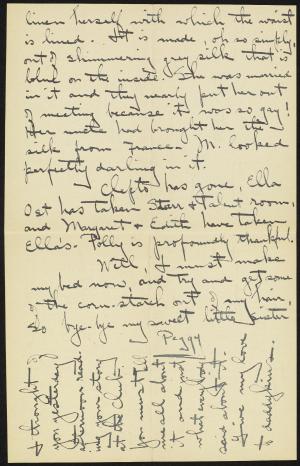 linen herself with which the waist
is lined. It is made, oh so simply,
out of shimmering grey silk that is
blue on the inside. She was married
in it and they nearly put her out
of meeting because it was so gay!
Her uncle had brought her the
silk from France. M. looked
perfectly darling in it.
has gone, Ella
Ost has taken Starr & Talent room,
and Margaret & Edith have taken
Ella's. Polly is profoundly thankful.
Well, I must make
my bed now, and try and get some
of the corn-starch out of my hair,
So bye-bye my sweet little sister
Peggy
I thought of
you yesterday
afternoon
your story
at the Club.
You must tell
me all about
it and just
what everybody
said about it.
Give my love
to